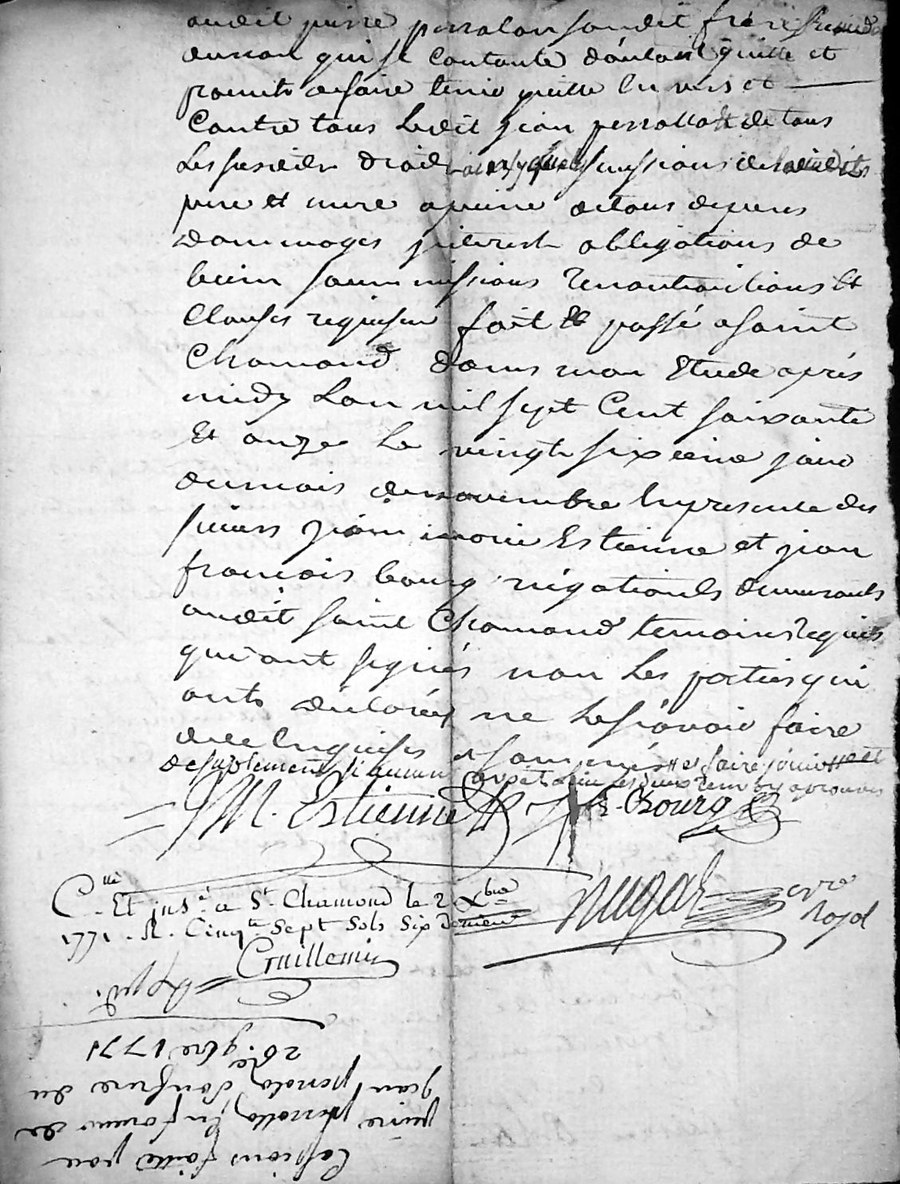 audit pierre perralon sondit frere
durnon qui se contante d'autant quitte et
promit a faire tenir quitte Envers et
Contre tous Ledit jean perrallon de tous
Les susdits droits missions desdits
pere et mere a peine de tous depens
dommages jnterest obligations de
biens soummissions renontiations et
Clauses requises fait et passé a saint
Chamond dans mon Etude après
midy Lan mil sept Cent soixante
Et onze Le vingt sixieme jour
du mois de novembre En presence des
sieurs jean marie Estienne et jean
françois bourg négotiants demeurants
audit saint Chamond temoins requis
qui ont signés non Les parties qui
ont déclarées ne Le sçavoir faire
de ce Enquises et sommées
faire jouir
J M. Estienne J f. Bourg
C.lle Et ins.é a St. Chamond le 2 Xbre
1771. R. Cinq.te Sept Sols Six deniers
nugas no.re Royal
Guillemin
Cessions faitte par
pierre perrallon En faveur de
jean perrallon son frere du
26e. 9bre 1771